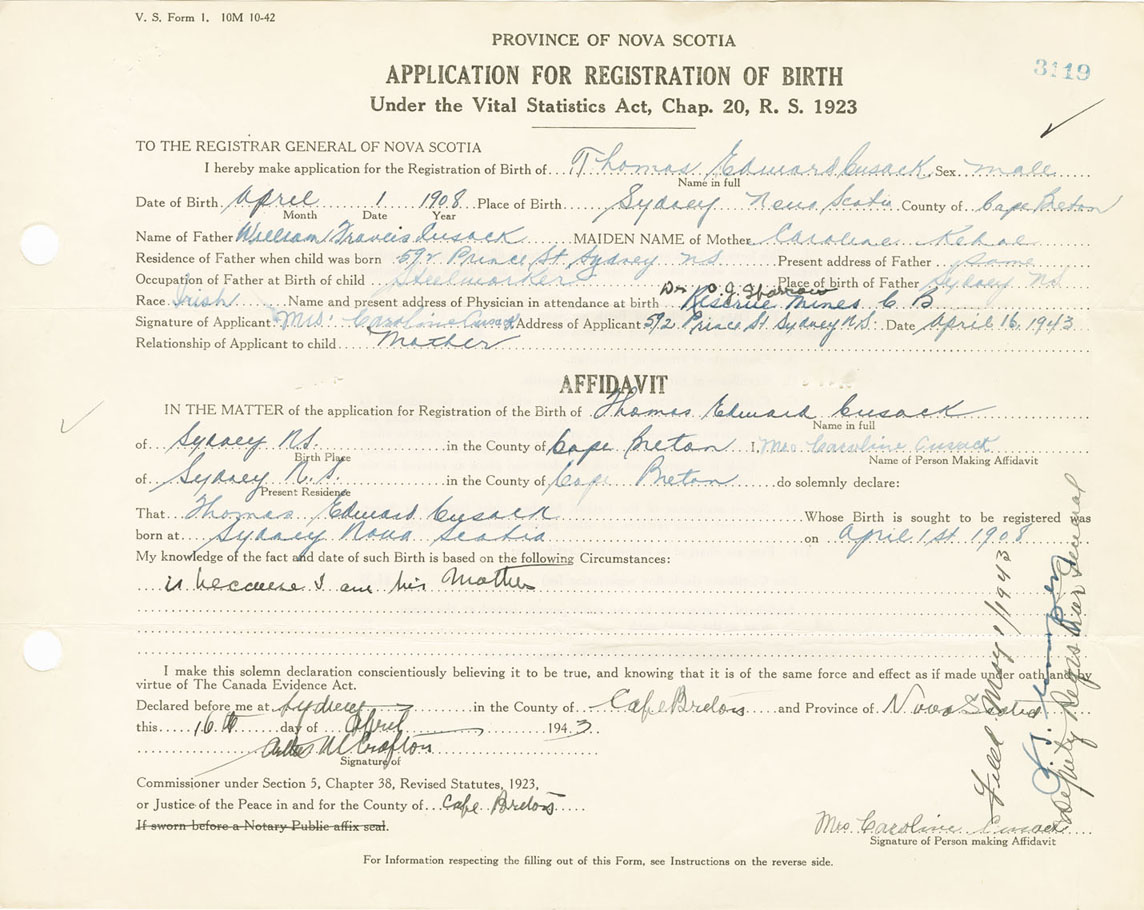 V. S. Form 1. 10M 10-42
PROVINCE OF NOVA SCOTIA
3119
APPLICATION FOR REGISTRATION OF BIRTH
Under the Vital Statistics Act, Chap. 20, R. S. 1923
TO THE REGISTRAR GENERAL OF NOVA SCOTIA
I hereby make application for the Registration of Birth of Thomas Edward Cusack Sex male
Name in full
Date of Birth April 1 1908 Place of Birth Sydney Nova Scotia County of Cape Breton
Month Date Year
Name of Father William Francis Cusack MAIDEN NAME of Mother Caroline Kehoe
Residence of Father when child was born 592 Prince St. Sydney NS Present address of Father same
Occupation of Father at Birth of child Steelworker Place of birth of Father Sydney NS.
Race Irish Name and present address of Physician in attendance at birth Dr. Reserve Mines C B
Signature of Applicant Mrs. Caroline Cusack Address of Applicant 592 Prince St Sydney N.S. Date April 16, 1943
Relationship of Applicant to child Mother
AFFIDAVIT
IN THE MATTER of the application for Registration of the Birth of Thomas Edward Cusack
Name in full
of Sydney N.S. in the County of Cape Breton I, Mrs Caroline Cusack
Birth Place Name of Person Making Affidavit
of Sydney N.S. in the County of Cape Breton do solemnly declare:
Present Residence
That Thomas Edward Cusack Whose Birth is sought to be registered was
born at Sydney Nova Scotia on April 1st 1908
My knowledge of the fact and date of such Birth is based on the following Circumstances:
is because I am his Mother
I make this solemn declaration conscientiously believing it to be true, and knowing that it is of the same force and effect as if made under oath and by
virtue of The Canada Evidence Act.
Declared before me at Sydney in the County of Cape Breton and Province of Nova Scotia
this 16th day of April 1943
Crofton
Signature of
Commissioner under Section 5, Chapter 38, Revised Statutes, 1923,
or Justice of the Peace in and for the County of Cape Breton
If sworn before a Notary Public affix seal.
Mrs Caroline Cusack
Signature of Person making Affidavit
For Information respecting the filling out of this Form, see Instructions on the reverse side.
Filed May 1/1943
Deputy Registrar General